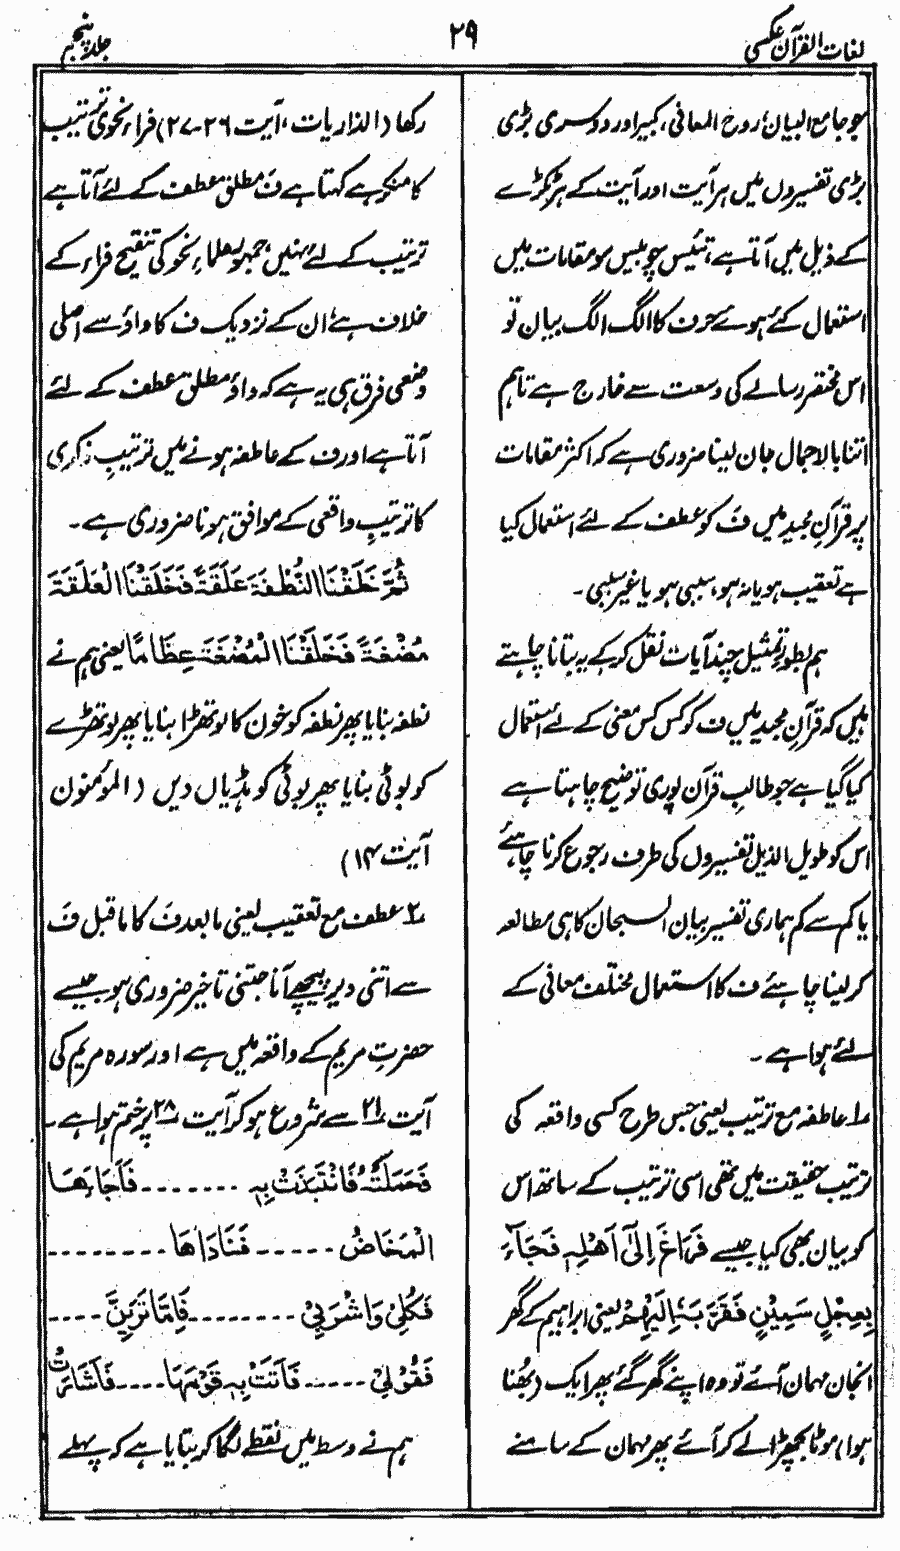 لغات القرآن عکسی
۲۹
جلد پنجم
جو جامع البیان، روح المعانی، کبیر اور دوسری بڑی
بڑی تفسیروں میں ہر آیت اور آیت کے ہر ٹکڑے
کے ذیل میں آتا ہے، تئیس چوبیس سو مقامات میں
استعمال کئے ہوئے حرف کا الگ الگ بیان تو
اس مختصر رسالے کی وسعت سے خارج ہے تاہم
اتنا بالاجمال جان لینا ضروری ہے کہ اکثر مقامات
پر قرآنِ مجید میں فَ کو عطف کے لئے استعمال کیا
ہے تعقیب ہو یا نہ ہو، سببی ہو یا غیر سببی۔
ہم بطور تمثیل چند آیات نقل کر کے یہ بتانا چاہتے
ہیں کہ قرآنِ مجید میں ف کو کس کس معنی کے لئے استعمال
کیا گیا ہے جو طالبِ قرآن پوری توضیح چاہتا ہے
اس کو طویل الذیل تفسیروں کی طرف رجوع کرنا چاہئے
یا کم سے کم ہماری تفسیر بیان السبحان کا ہی مطالعہ
کر لینا چاہئے ف کا استعمال مختلف معانی کے
لئے ہوا ہے۔
۱؎ عاطفہ مع ترتیب یعنی جس طرح کسی واقعہ کی
ترتیب حقیقت میں تھی اسی ترتیب کے ساتھ اس
کو بیان بھی کیا جیسے فَرَاغَ اِلٰٓی اَھْلِہٖ فَجَآءَ
بِعِجْلٍ سَمِیْنٍ فَقَرَّبَہٗٓ اِلَیْھِمْ یعنی ابراہیم کے گھر
انجان مہمان آئے تو وہ اپنے گھر گئے پھر ایک (بھُنا
ہوا) موٹا بچھڑا لے کر آئے پھر مہمان کے سامنے
رکھا (الذاریات، آیت ۲۶-۲۷) فراء نحوی ترتیب
کا منکر ہے کہتا ہے فَ مطلق عطف کے لئے آتا ہے
ترتیب کے لئے نہیں، جمہور علماء نحو کی تنقیح فراء کے
خلاف ہے، ان کے نزدیک ف کا واؤ سے اصلی
وضعی فرق ہی یہ ہے کہ واؤ مطلق عطف کے لئے
آتا ہے اور ف کے عاطفہ ہونے میں ترتیبِ ذکری
کا ترتیبِ واقعی کے موافق ہونا ضروری ہے۔
ثُمَّ خَلَقْنَا النُّطْفَۃَ عَلَقَۃً فَخَلَقْنَا الْعَلَقَۃَ
مُضْغَۃً فَخَلَقْنَا الْمُضْغَۃَ عِظَامًا یعنی ہم نے
نطفہ بنایا پھر نطفہ کو خون کا لوتھڑا بنایا پھر لوتھڑے
کو بوٹی بنایا پھر بوٹی کو ہڈیاں دیں (المؤمنون
آیت ۱۴)
۲؎ عطف مع تعقیب یعنی مابعد فَ کا ماقبل فَ
سے اتنی دیر پیچھے آنا جتنی تاخیر ضروری ہو جیسے
حضرتِ مریم کے واقعہ میں ہے اور سورہ مریم کی
آیت ۲۱ سے شروع ہو کر آیت ۲۸ پر ختم ہوا ہے۔
فَحَمَلَتْہُ فَانْتَبَذَتْ بِہٖ ------- فَاَجَاءَھَا
الْمَخَاضُ ------ فَنَادَاھَا --------
فَکُلِیْ وَاشْرَبِیْ -------- فَاِمَّا تَرَیِنَّ ----
فَقُوْلِیْ ------ فَاَتَتْ بِہٖ قَوْمَھَا ---- فَاَشَارَتْ
ہم نے وسط میں نقطے لگا کر بتایا ہے کہ پہلے